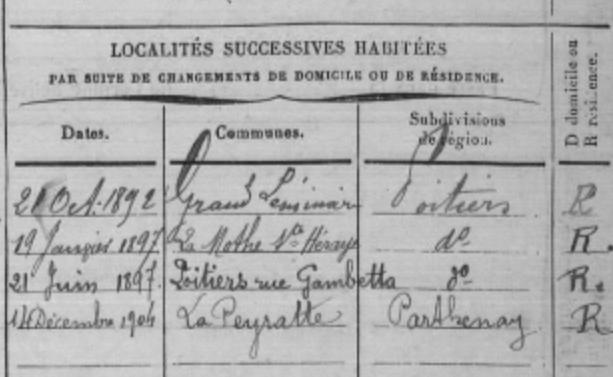 LOCALITÉS SUCCESSIVES HABITÉES
PAR SUITE DE CHANGEMENTS DE DOMICILE OU DE RÉSIDENCE.
D domicile ou
R résidence.
Dates. Communes. Subdivisions
de région.
21 Oct. 1892 Grand Séminaire Poitiers R
19 Janvier 1897 La Mothe Ste Héraye do R.
21 Juin 1897. Poitiers rue Gambetta do R.
14 Décembre 1904 La Peyratte Parthenay R